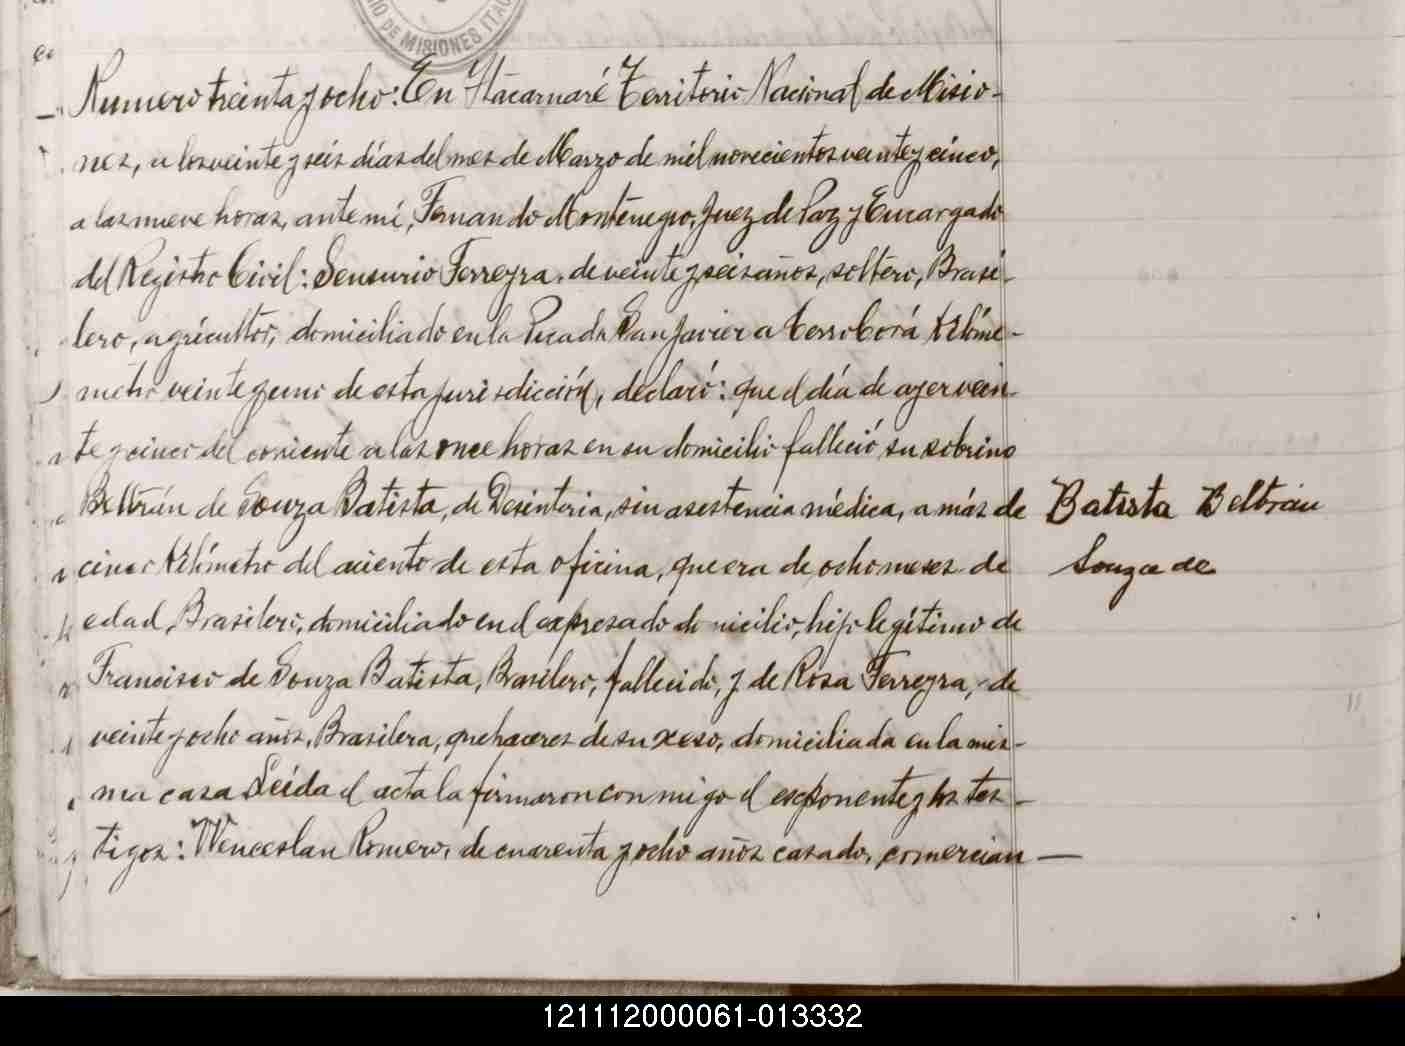 DE MISIONES ITA
Numero treinta y ocho: En Itacaruaré Territorio Nacional de Misio-
nes, a los veinte y seis días del mes de Marzo de mil novecientos veinte y cinco,
a las nueve horas, ante mí, Fernando Montenegro, Juez de Paz y Encargado
del Registro Civil: Sensurio Ferreyra, de veinte y seis años, soltero, Brasi-
lero, agricultor, domiciliado en la Picada San Javier a Cerro Corá Kilóme-
metro veinte y uno de esta jurisdicción, declaró: que el día de ayer vein-
te y cinco del corriente a las once horas en su domicilio falleció su sobrino
Beltrán de Souza Batista, de Desinteria, sin asestencia médica, a más de
cinco Kilómetro del aciento de esta oficina, que era de ocho meses de
edad, Brasilero, domiciliado en el expresado do nicilio, hijo legítimo de
Francisco de Souza Batista, Brasilero, fallecido, y de Rosa Ferreyra, de
veinte y ocho años, Brasilera, quehaceres de su xeso, domiciliada en la mis-
ma casa Leída el acta la firmaron con migo el exponente y los tes-
tigos: Wenceslau Romero, de cuarenta y ocho años casado, comercian—
Batista Beltrán
Souza de
121112000061-013332